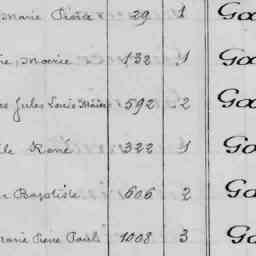 Marie Pierre 29 1 Go
Marie 132 1 Go
Jules Louis Marie 592 2 Go
René 322 1 Go
Baptiste 606 2 Go
Marie Pierre Paul 1008 3 Go